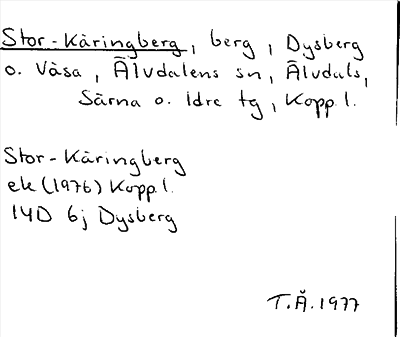 Stor-Käringberg, berg, Dysberg
o. Våsa, Älvdalens sn, Älvdals,
Särna o. Idre tg, Kopp.l.
Stor-Käringberg
ek (1976) Kopp.l.
14D 6j Dysberg
T.Å.1977